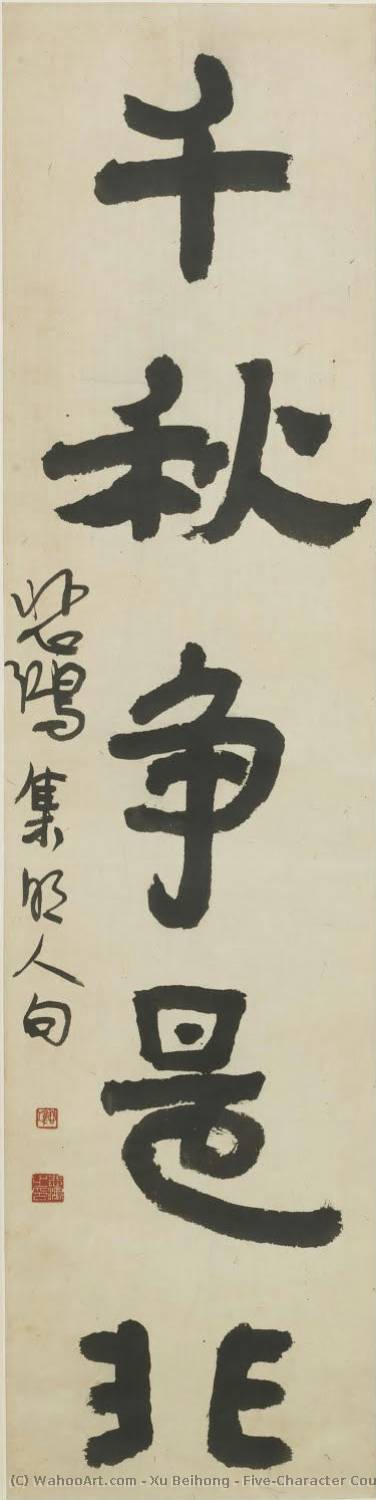 千秋争是非
悲鴻集明人句
(C) WahooArt.com - Xu Beihong - Five-Character Cou